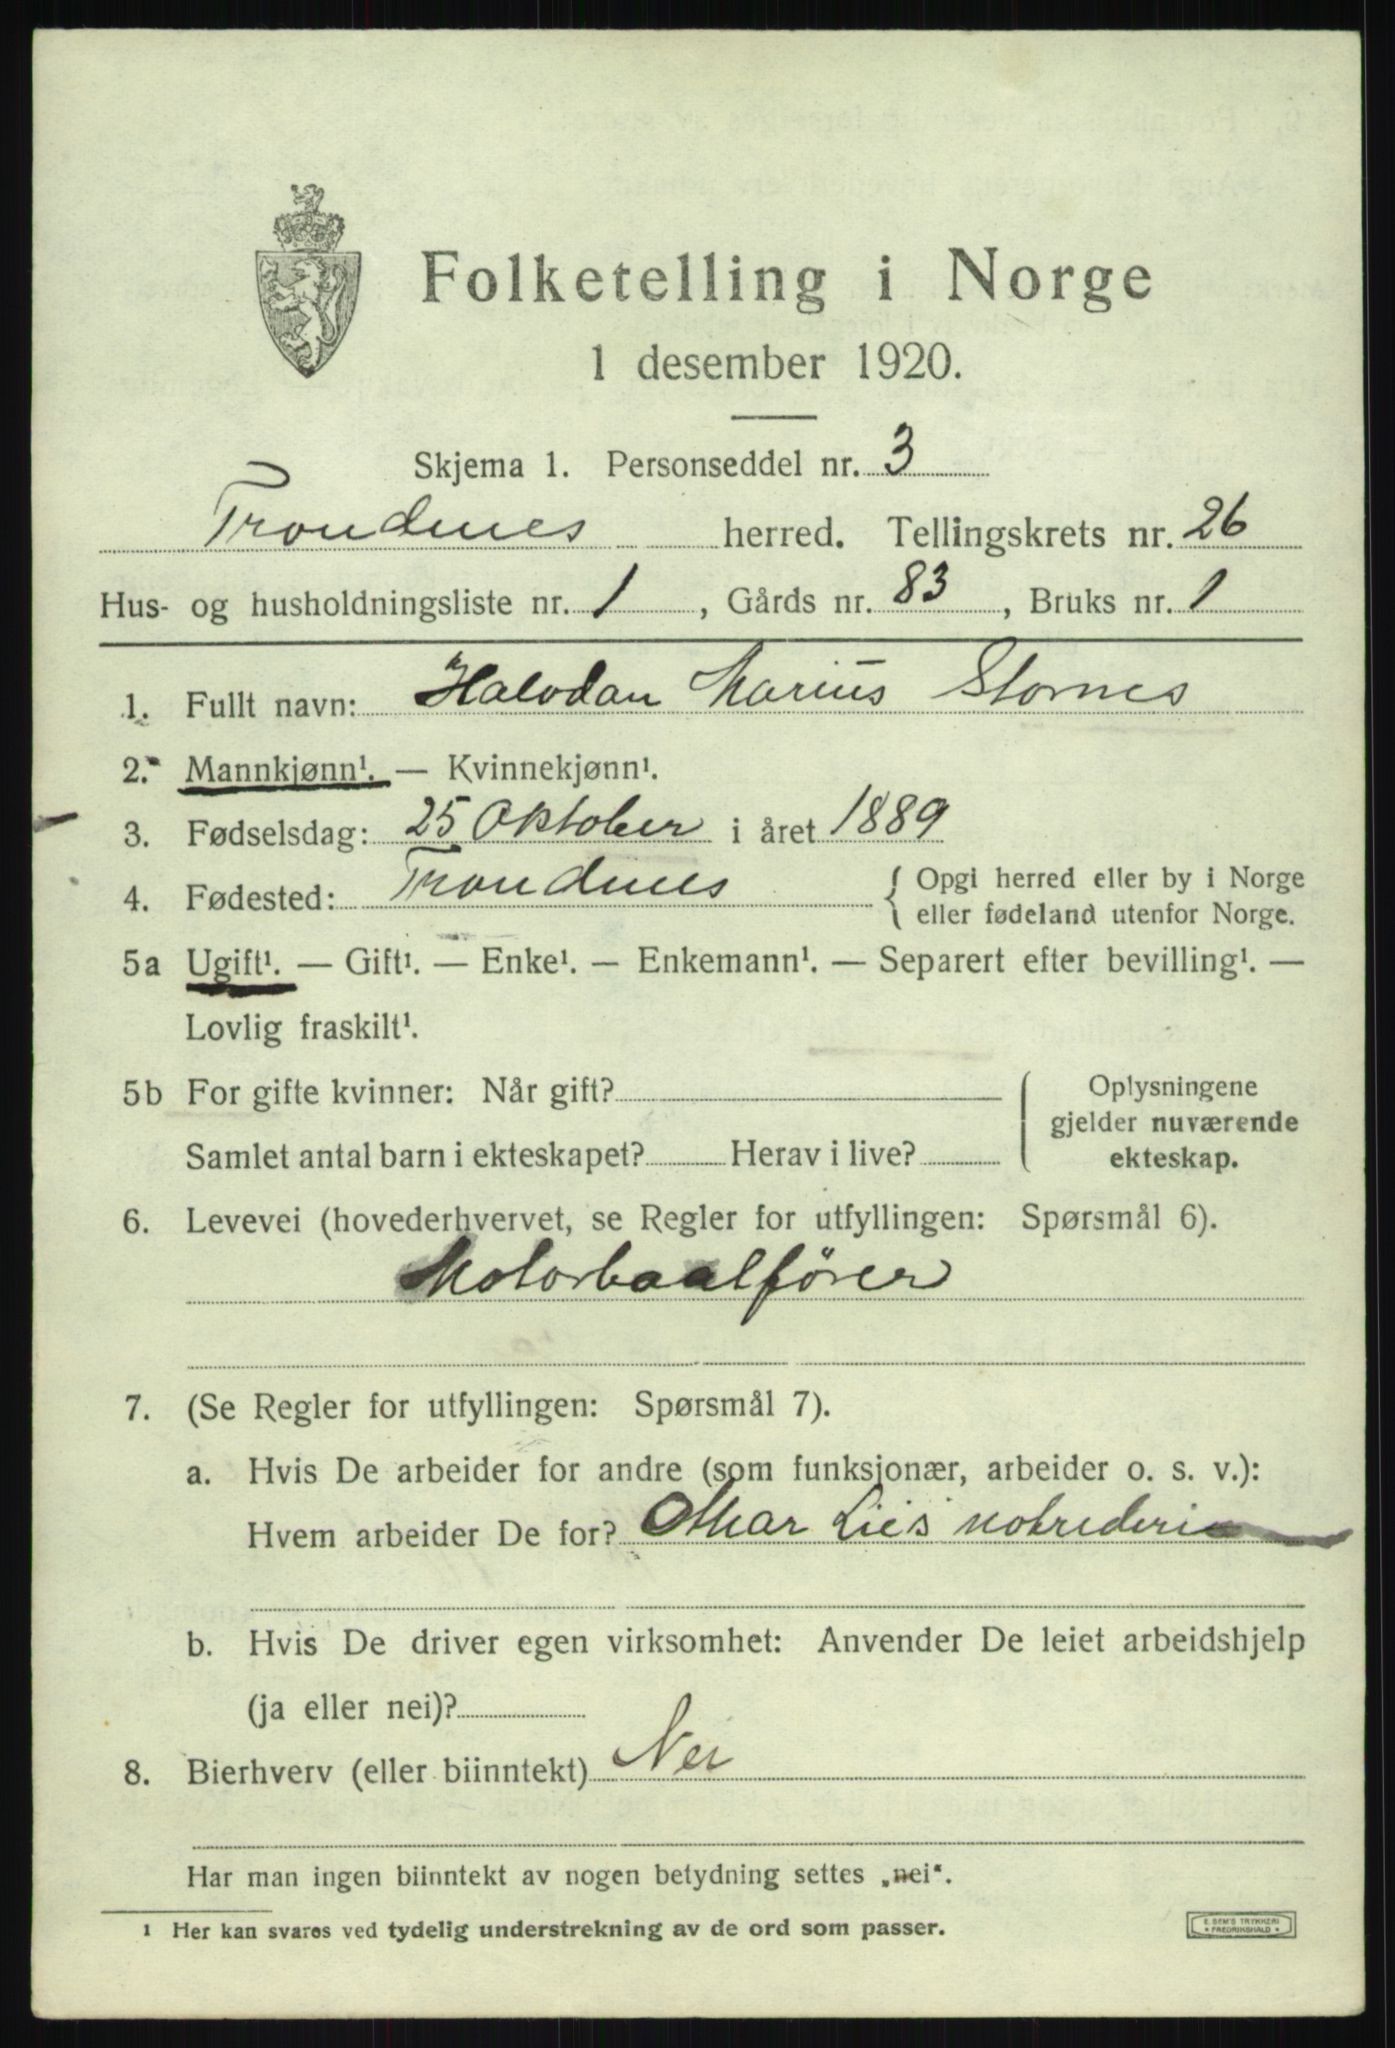 Folketelling i Norge
1 desember 1920.
Skjema 1. Personseddel nr. 3
Trondenes herred. Tellingskrets nr. 26
Hus- og husholdningsliste nr. 1, Gårds nr. 83, Bruks nr. 1
1. Fullt navn: Halvdan Marius Stornes
2. Mannkjønn¹. — Kvinnekjønn¹.
3. Fødselsdag: 25 Oktober i året 1889
4. Fødested: Trondenes { Opgi herred eller by i Norge
eller fødeland utenfor Norge.
5a Ugift¹. — Gift¹. — Enke¹. — Enkemann¹. — Separert efter bevilling¹. —
Lovlig fraskilt¹.
5b For gifte kvinner: Når gift?
Samlet antal barn i ekteskapet? Herav i live?
Oplysningene
gjelder nuværende
ekteskap.
6. Levevei (hovederhvervet, se Regler for utfyllingen: Spørsmål 6).
Motorbaatfører
7. (Se Regler for utfyllingen: Spørsmål 7).
a. Hvis De arbeider for andre (som funksjonær, arbeider o. s. v.):
Hvem arbeider De for? Lies notrederi
b. Hvis De driver egen virksomhet: Anvender De leiet arbeidshjelp
(ja eller nei)?
8. Bierhverv (eller biinntekt) Nei
Har man ingen biinntekt av nogen betydning settes „nei“.
1 Her kan svares ved tydelig understrekning av de ord som passer.
E. SEM'S TRYKKERI
* FREDRIKSHALD *